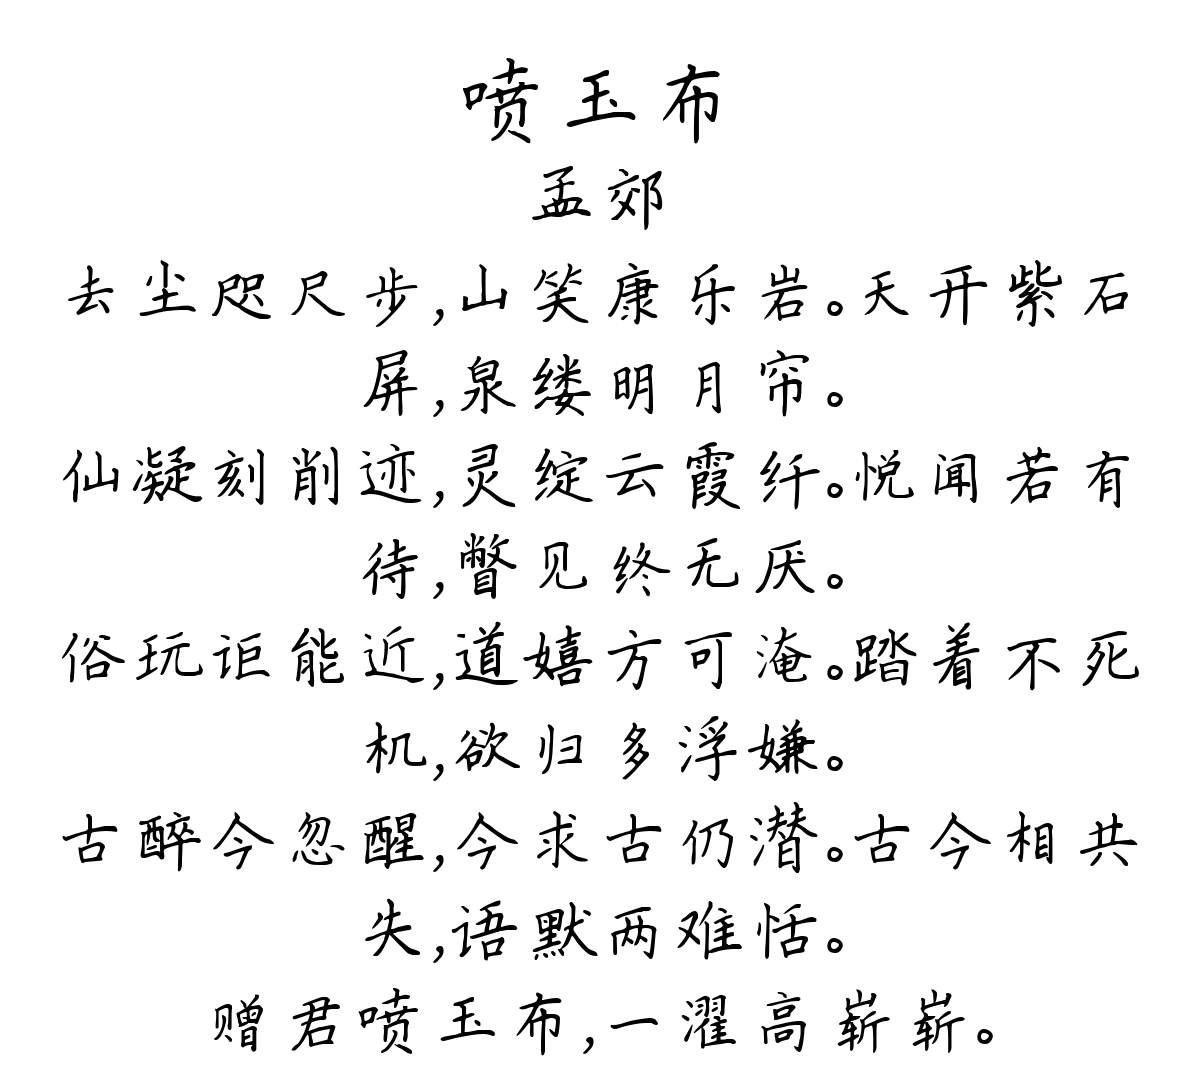 喷玉布
孟郊
去尘咫尺步,山笑康乐岩。天开紫石
屏,泉缕明月帘。
仙凝刻削迹,灵绽云霞纤。悦闻若有
待,瞥见终无厌。
俗玩讵能近,道嬉方可淹。踏着不死
机,欲归多浮嫌。
古醉今忽醒,今求古仍潜。古今相共
失,语默两难恬。
赠君喷玉布,一濯高崭崭。